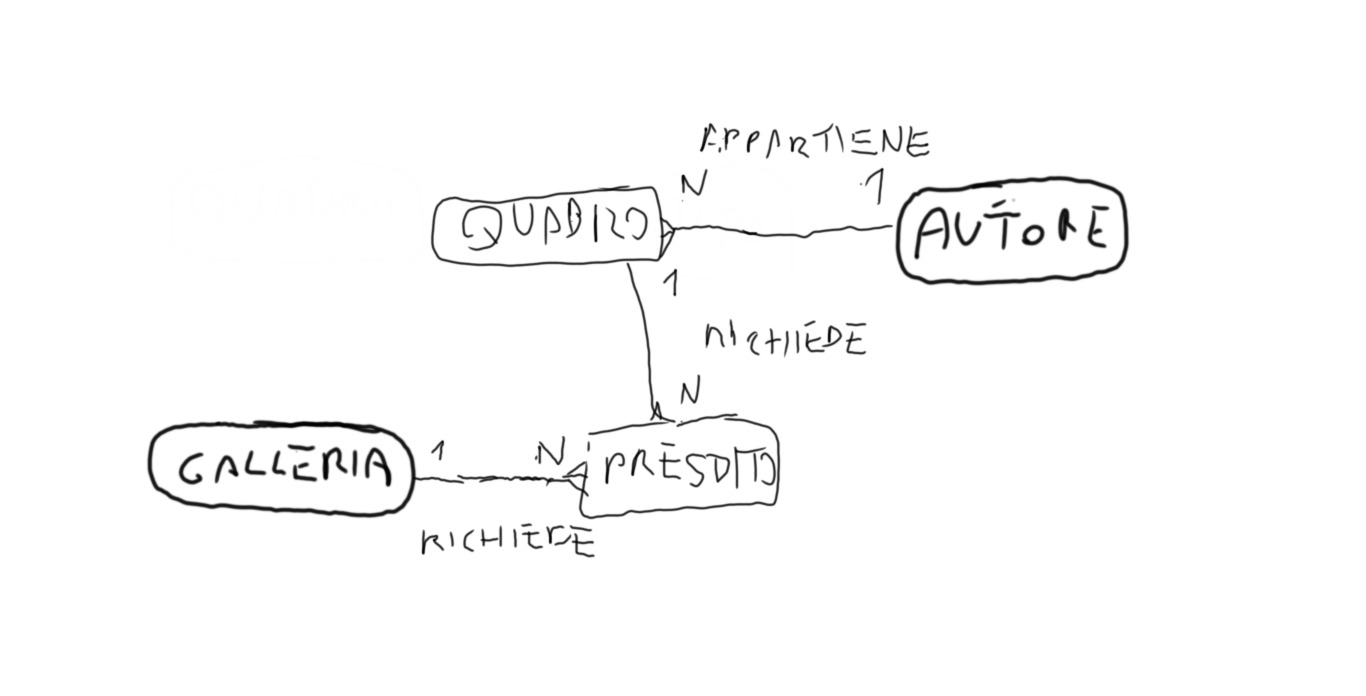 APPARTIENE
N 1
QUADRO
AUTORE
1
RICHIEDE
N
GALLERIA
1 N
PRESDITO
RICHIEDE